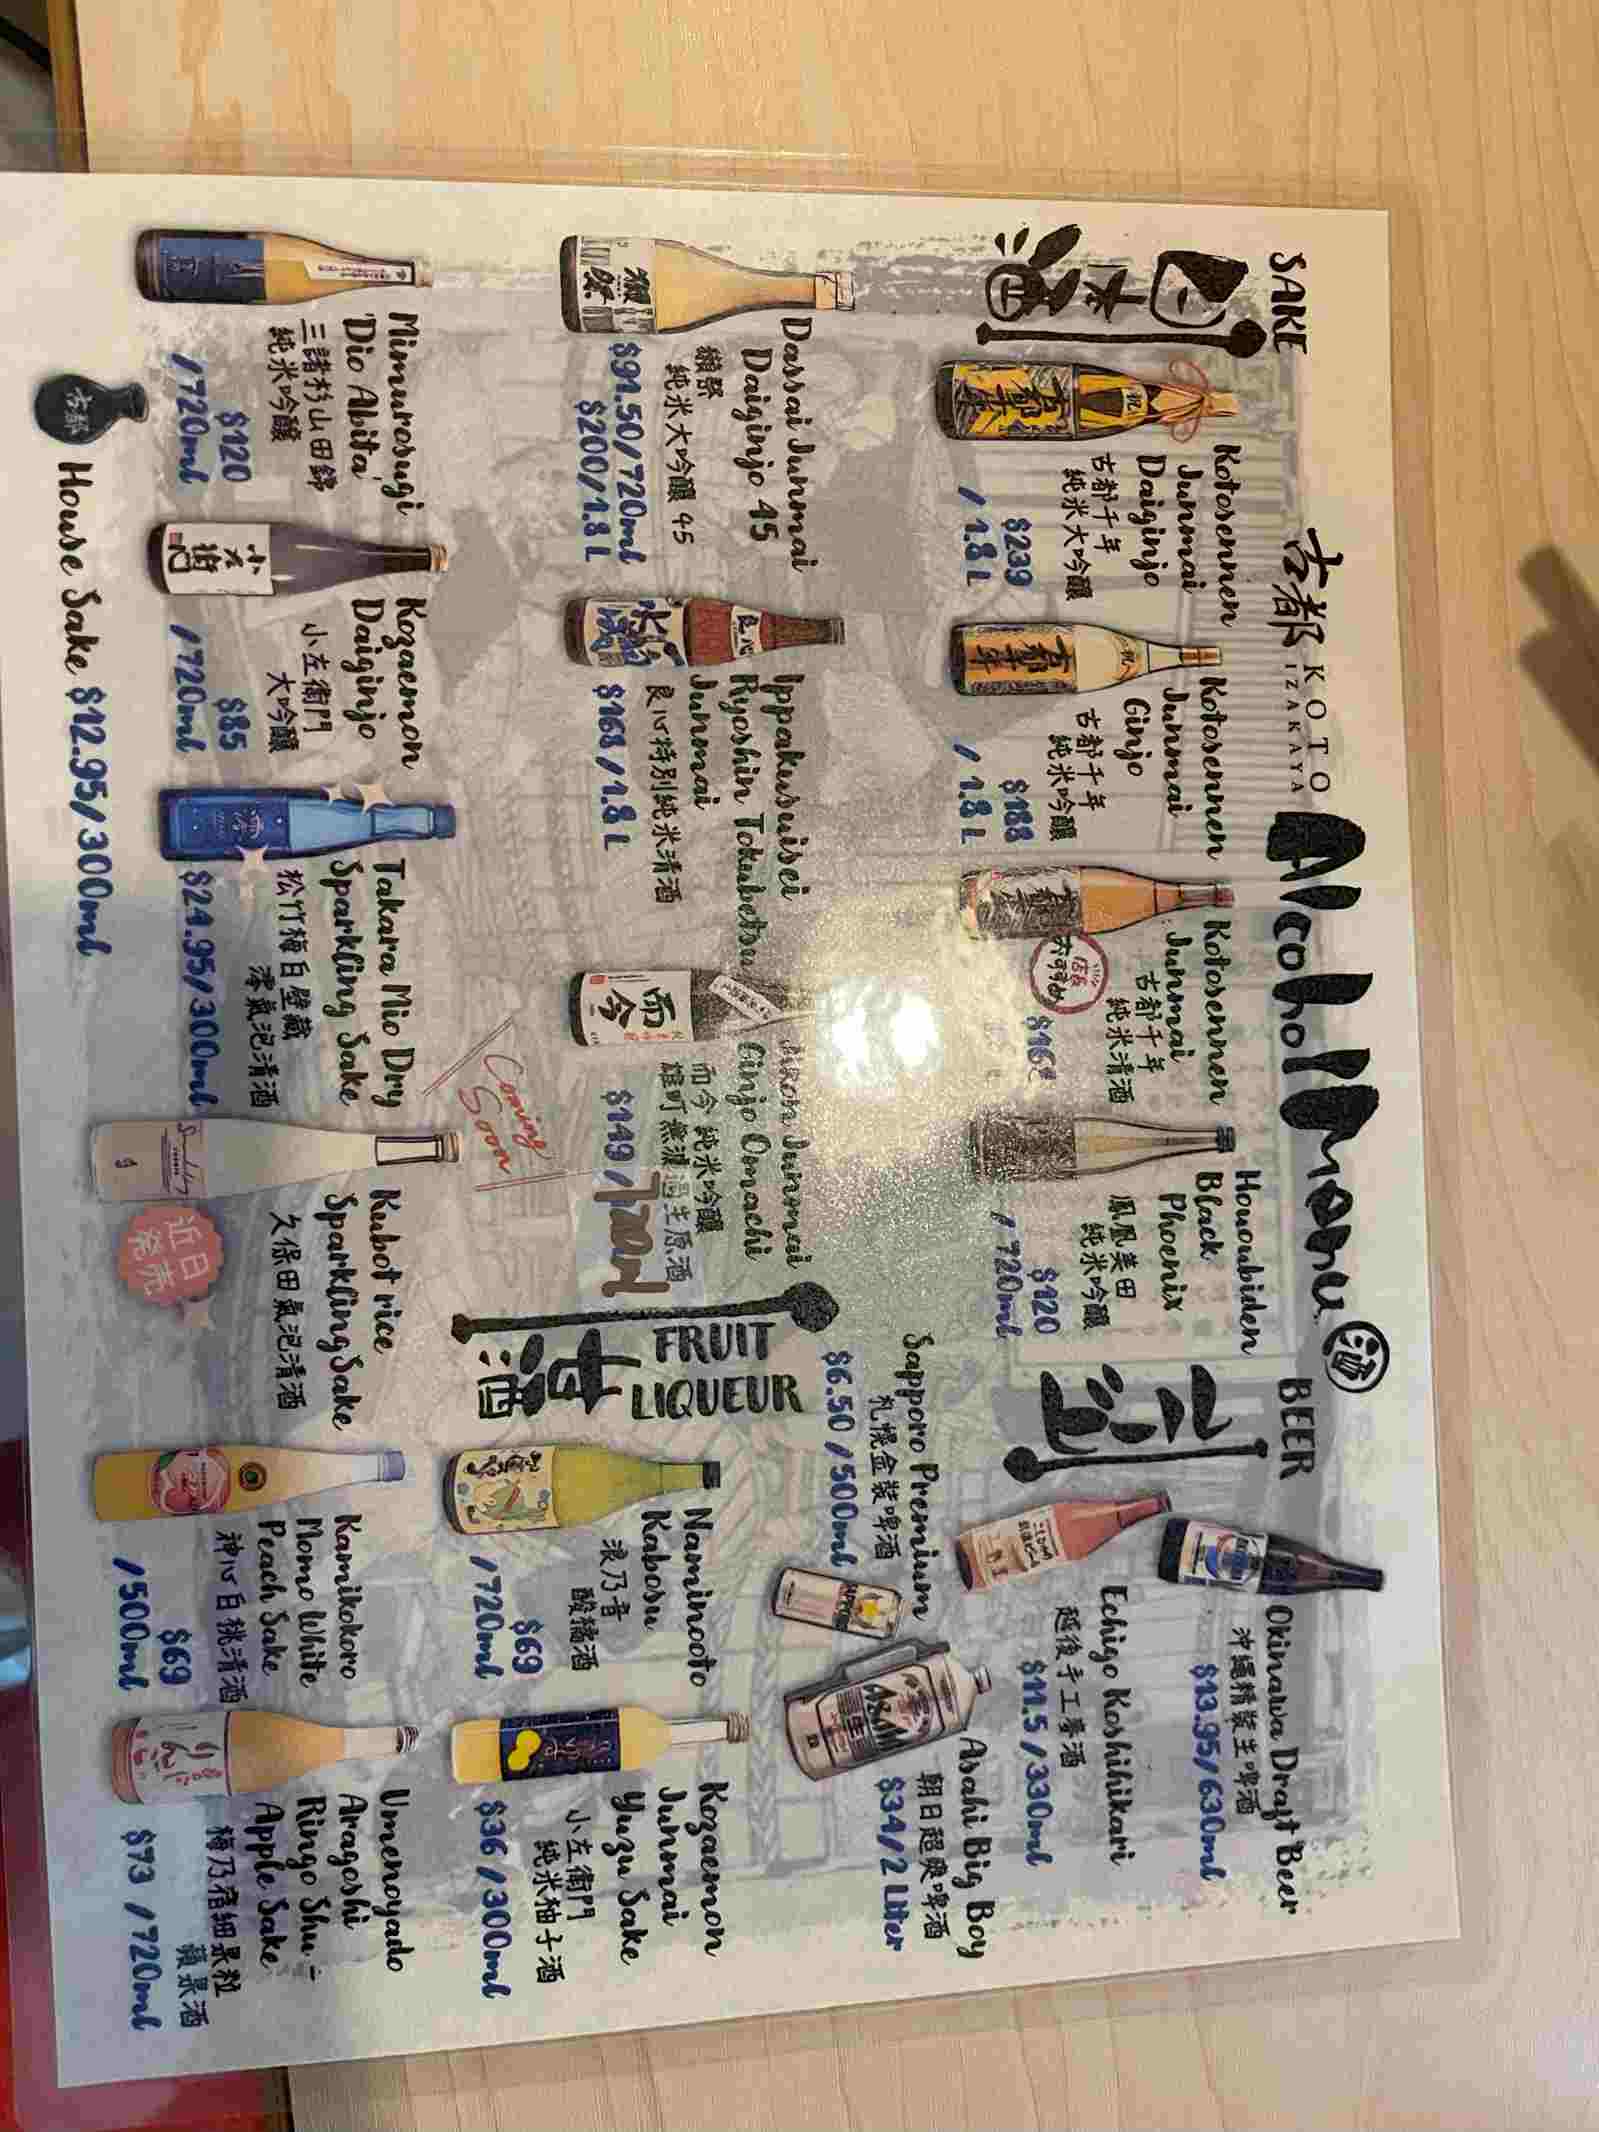 古都 KOTO
IZAKAYA
Alcohol Menu
酒
SAKE
日本酒
Kotosennen
Junmai
Daiginjo
古都千年
純米大吟釀
$239
/ 1.8 L
Kotosennen
Junmai
Ginjo
古都千年
純米吟釀
$188
/ 1.8 L
Kotosennen
Junmai
古都千年
純米清酒
店長
Hououbiden
Black
Phoenix
鳳凰美田
純米吟釀
$120
/ 720ml
Dassai Junmai
Daiginjo 45
獺祭
純米大吟釀 45
$91.50/720ml
$200/1.8 L
Ippakusuisei
Ryoshin Tokubetsu
Junmai
良心特別純米清酒
$168 / 1.8 L
Junmai
Ginjo Omachi
而今 純米吟釀
雄町無濾過生原酒
$149 /
Mimurosugi
'Dio Abita'
三諸杉山田錦
純米吟釀
$120
/720ml
Kozaemon
Daiginjo
小左衛門
大吟釀
$85
/720ml
Takara Mio Dry
Sparkling Sake
松竹梅白壁藏
澪氣泡清酒
$24.95/300ml
Coming
Soon
Kubot rice
Sparkling Sake
久保田氣泡清酒
近日
発売
古都
House Sake $12.95/300ml
BEER
Okinawa Draft Beer
沖繩精裝生啤酒
$13.95/630ml
Echigo Koshihikari
越後手工麥酒
$11.5 /330ml
Sapporo Premium
札幌金裝啤酒
$6.50 /500ml
Asahi Big Boy
朝日超爽啤酒
$34/2 Liter
FRUIT
LIQUEUR
Naminooto
Kabosu
浪乃音
酸橘酒
$69
/720ml
Kozaemon
Junmai
Yuzu Sake
小左衛門
純米柚子酒
$36 /300ml
Kamikokoro
Momo White
Peach Sake
神心白桃清酒
$69
/500ml
Umenoyado
Aragoshi
Ringo Shu -
Apple Sake
梅乃宿細果粒
蘋果酒
$73 /720ml